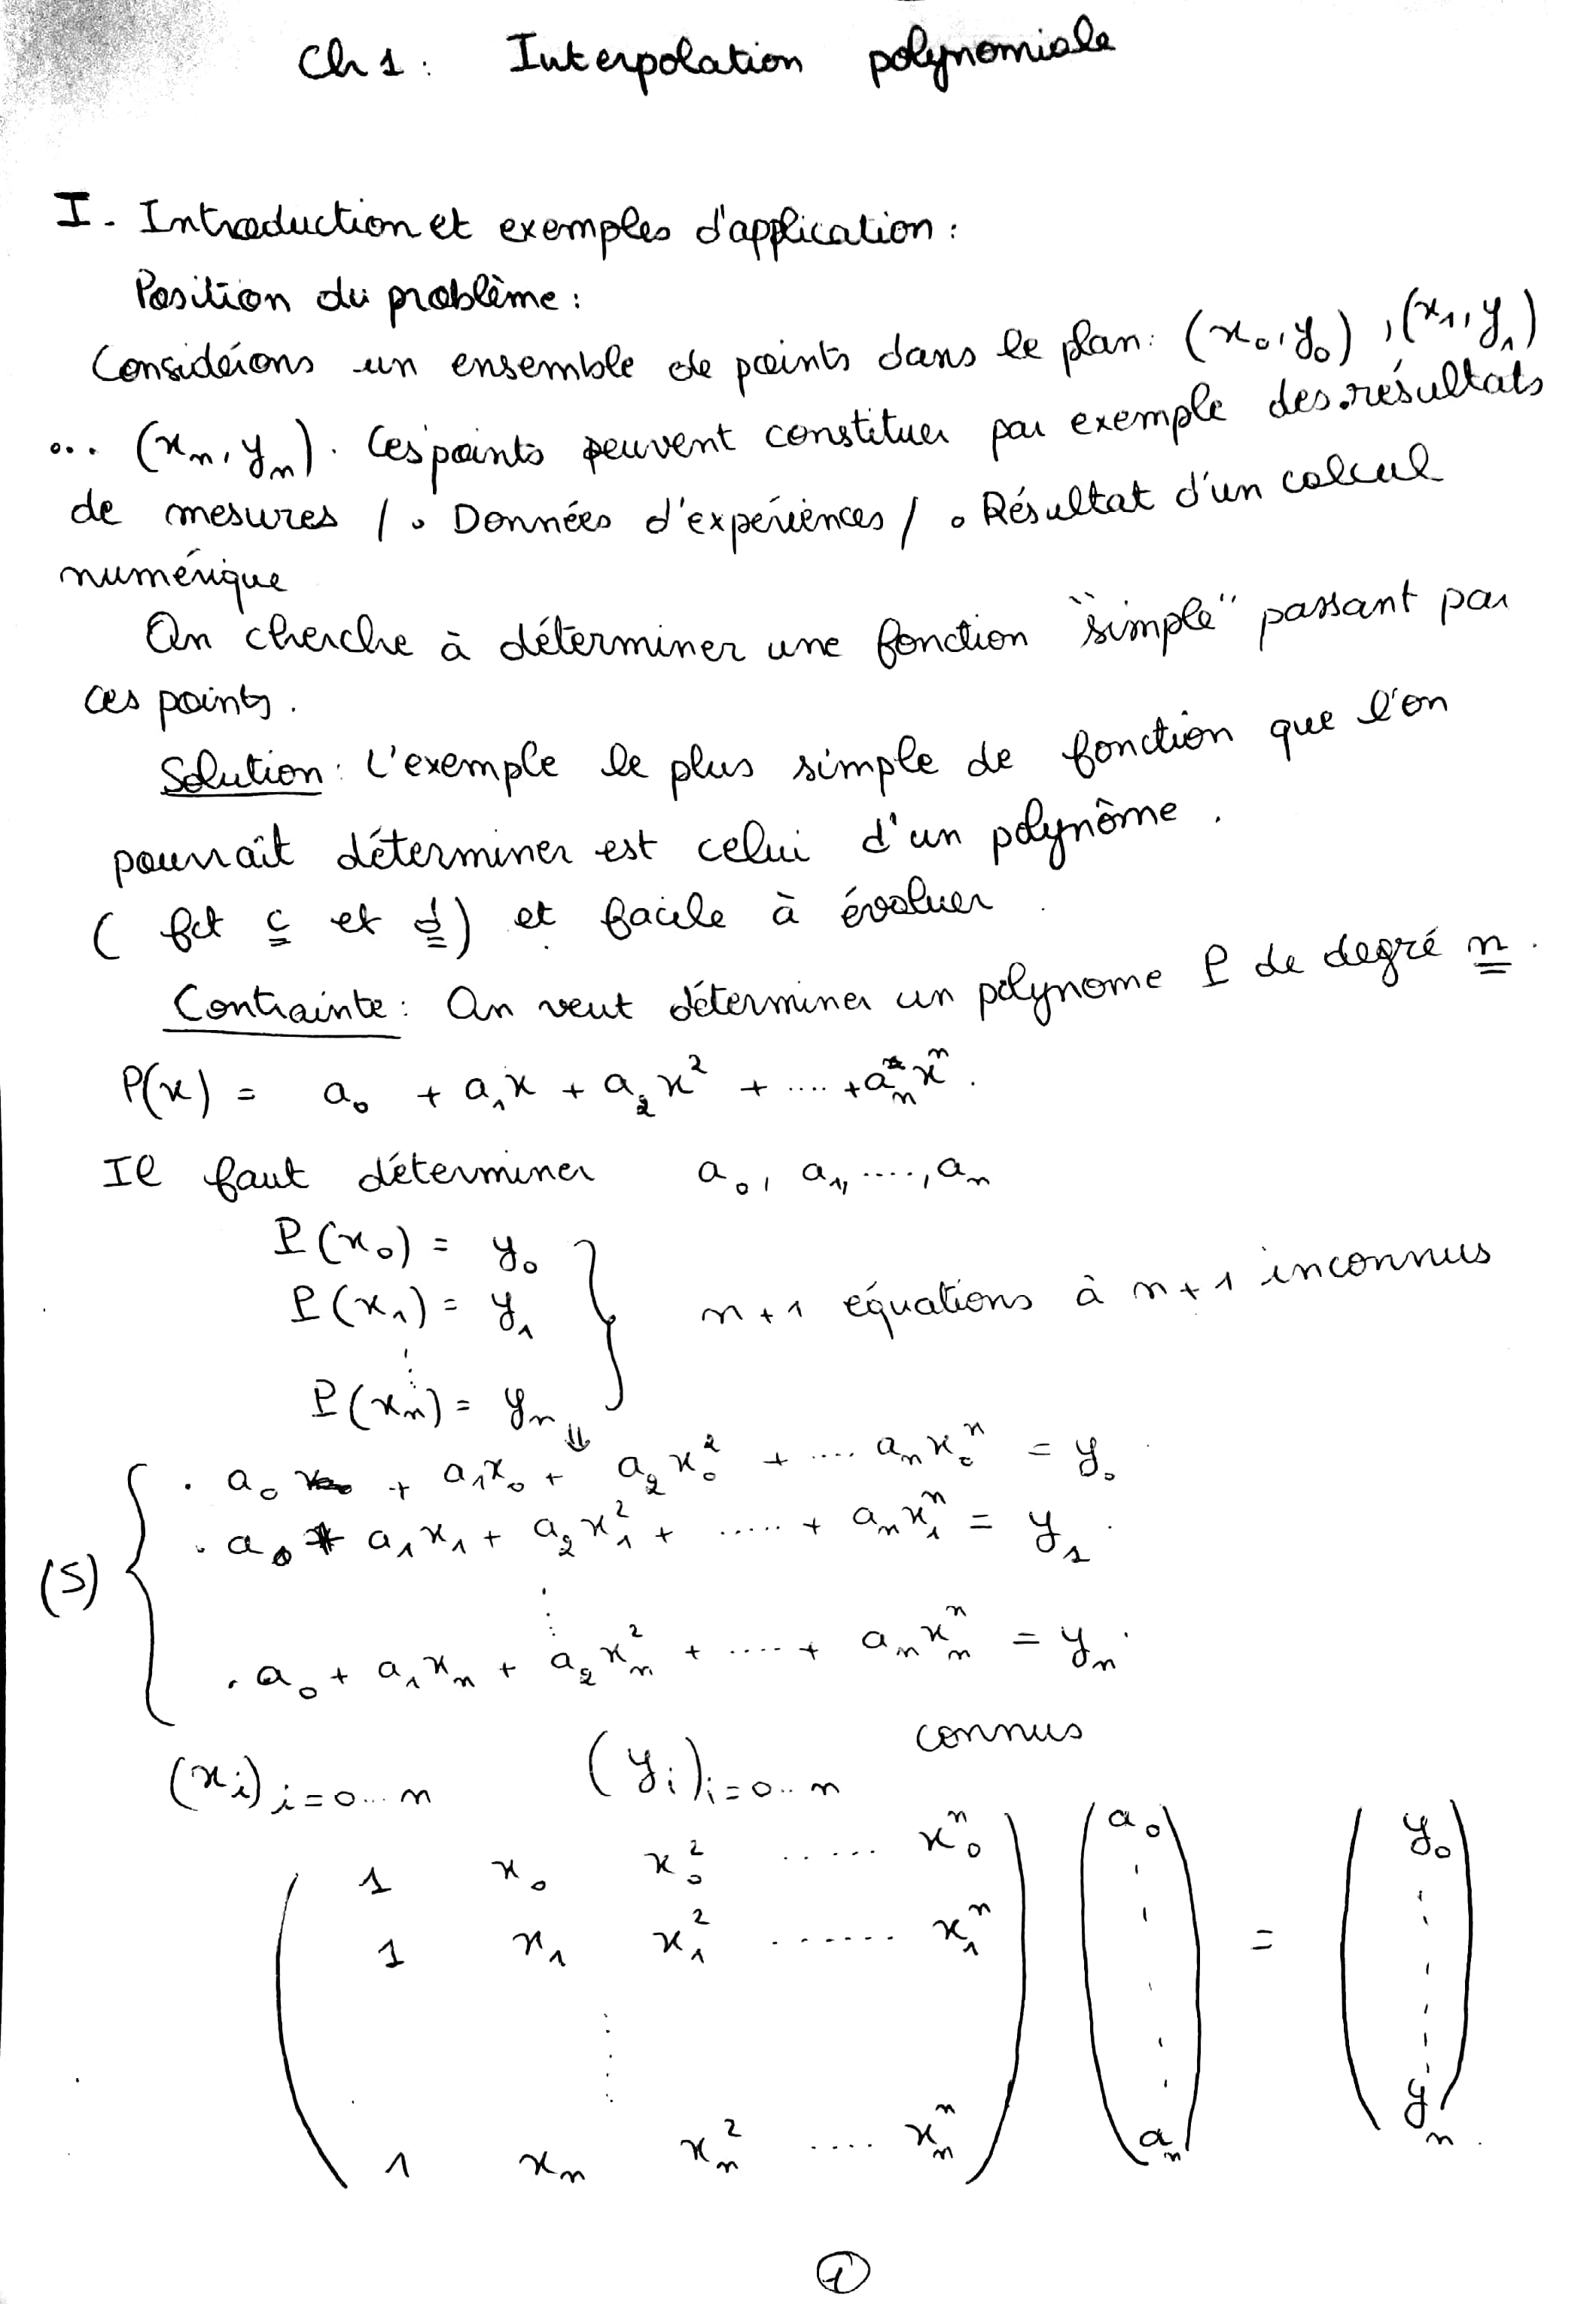 Ch 1 : Interpolation polynomiale
I - Introduction et exemples d'application :
Position du problème :
Considérons un ensemble de points dans le plan : (x₀, y₀), (x₁, y₁)
... (xₙ, yₙ). Ces points peuvent constituer par exemple des résultats
de mesures / • Données d'expériences / • Résultat d'un calcul
numérique
On cherche à déterminer une fonction "simple" passant par
ces points.
Solution : L'exemple le plus simple de fonction que l'on
pourrait déterminer est celui d'un polynôme.
( fct c et d ) et facile à évaluer.
Contrainte : On veut déterminer un polynome P de degré n.
P(x) = a₀ + a₁x + a₂x² + .... + aₙxⁿ.
Il faut déterminer a₀, a₁, ...., aₙ
P(x₀) = y₀
P(x₁) = y₁
n + 1 équations à n + 1 inconnus
⋮
P(xₙ) = yₙ
⇓
• a₀ + a₁x₀ + a₂x₀² + .... aₙx₀ⁿ = y₀
• a₀ + a₁x₁ + a₂x₁² + ..... + aₙx₁ⁿ = y₁
(S)
⋮
• a₀ + a₁xₙ + a₂xₙ² + ..... + aₙxₙⁿ = yₙ.
(xᵢ) i=0...n (yᵢ) i=0...n connus
1 x₀ x₀² ..... x₀ⁿ a₀ y₀
1 x₁ x₁² ...... x₁ⁿ =
⋮
1 xₙ xₙ² .... xₙⁿ aₙ yₙ.
1